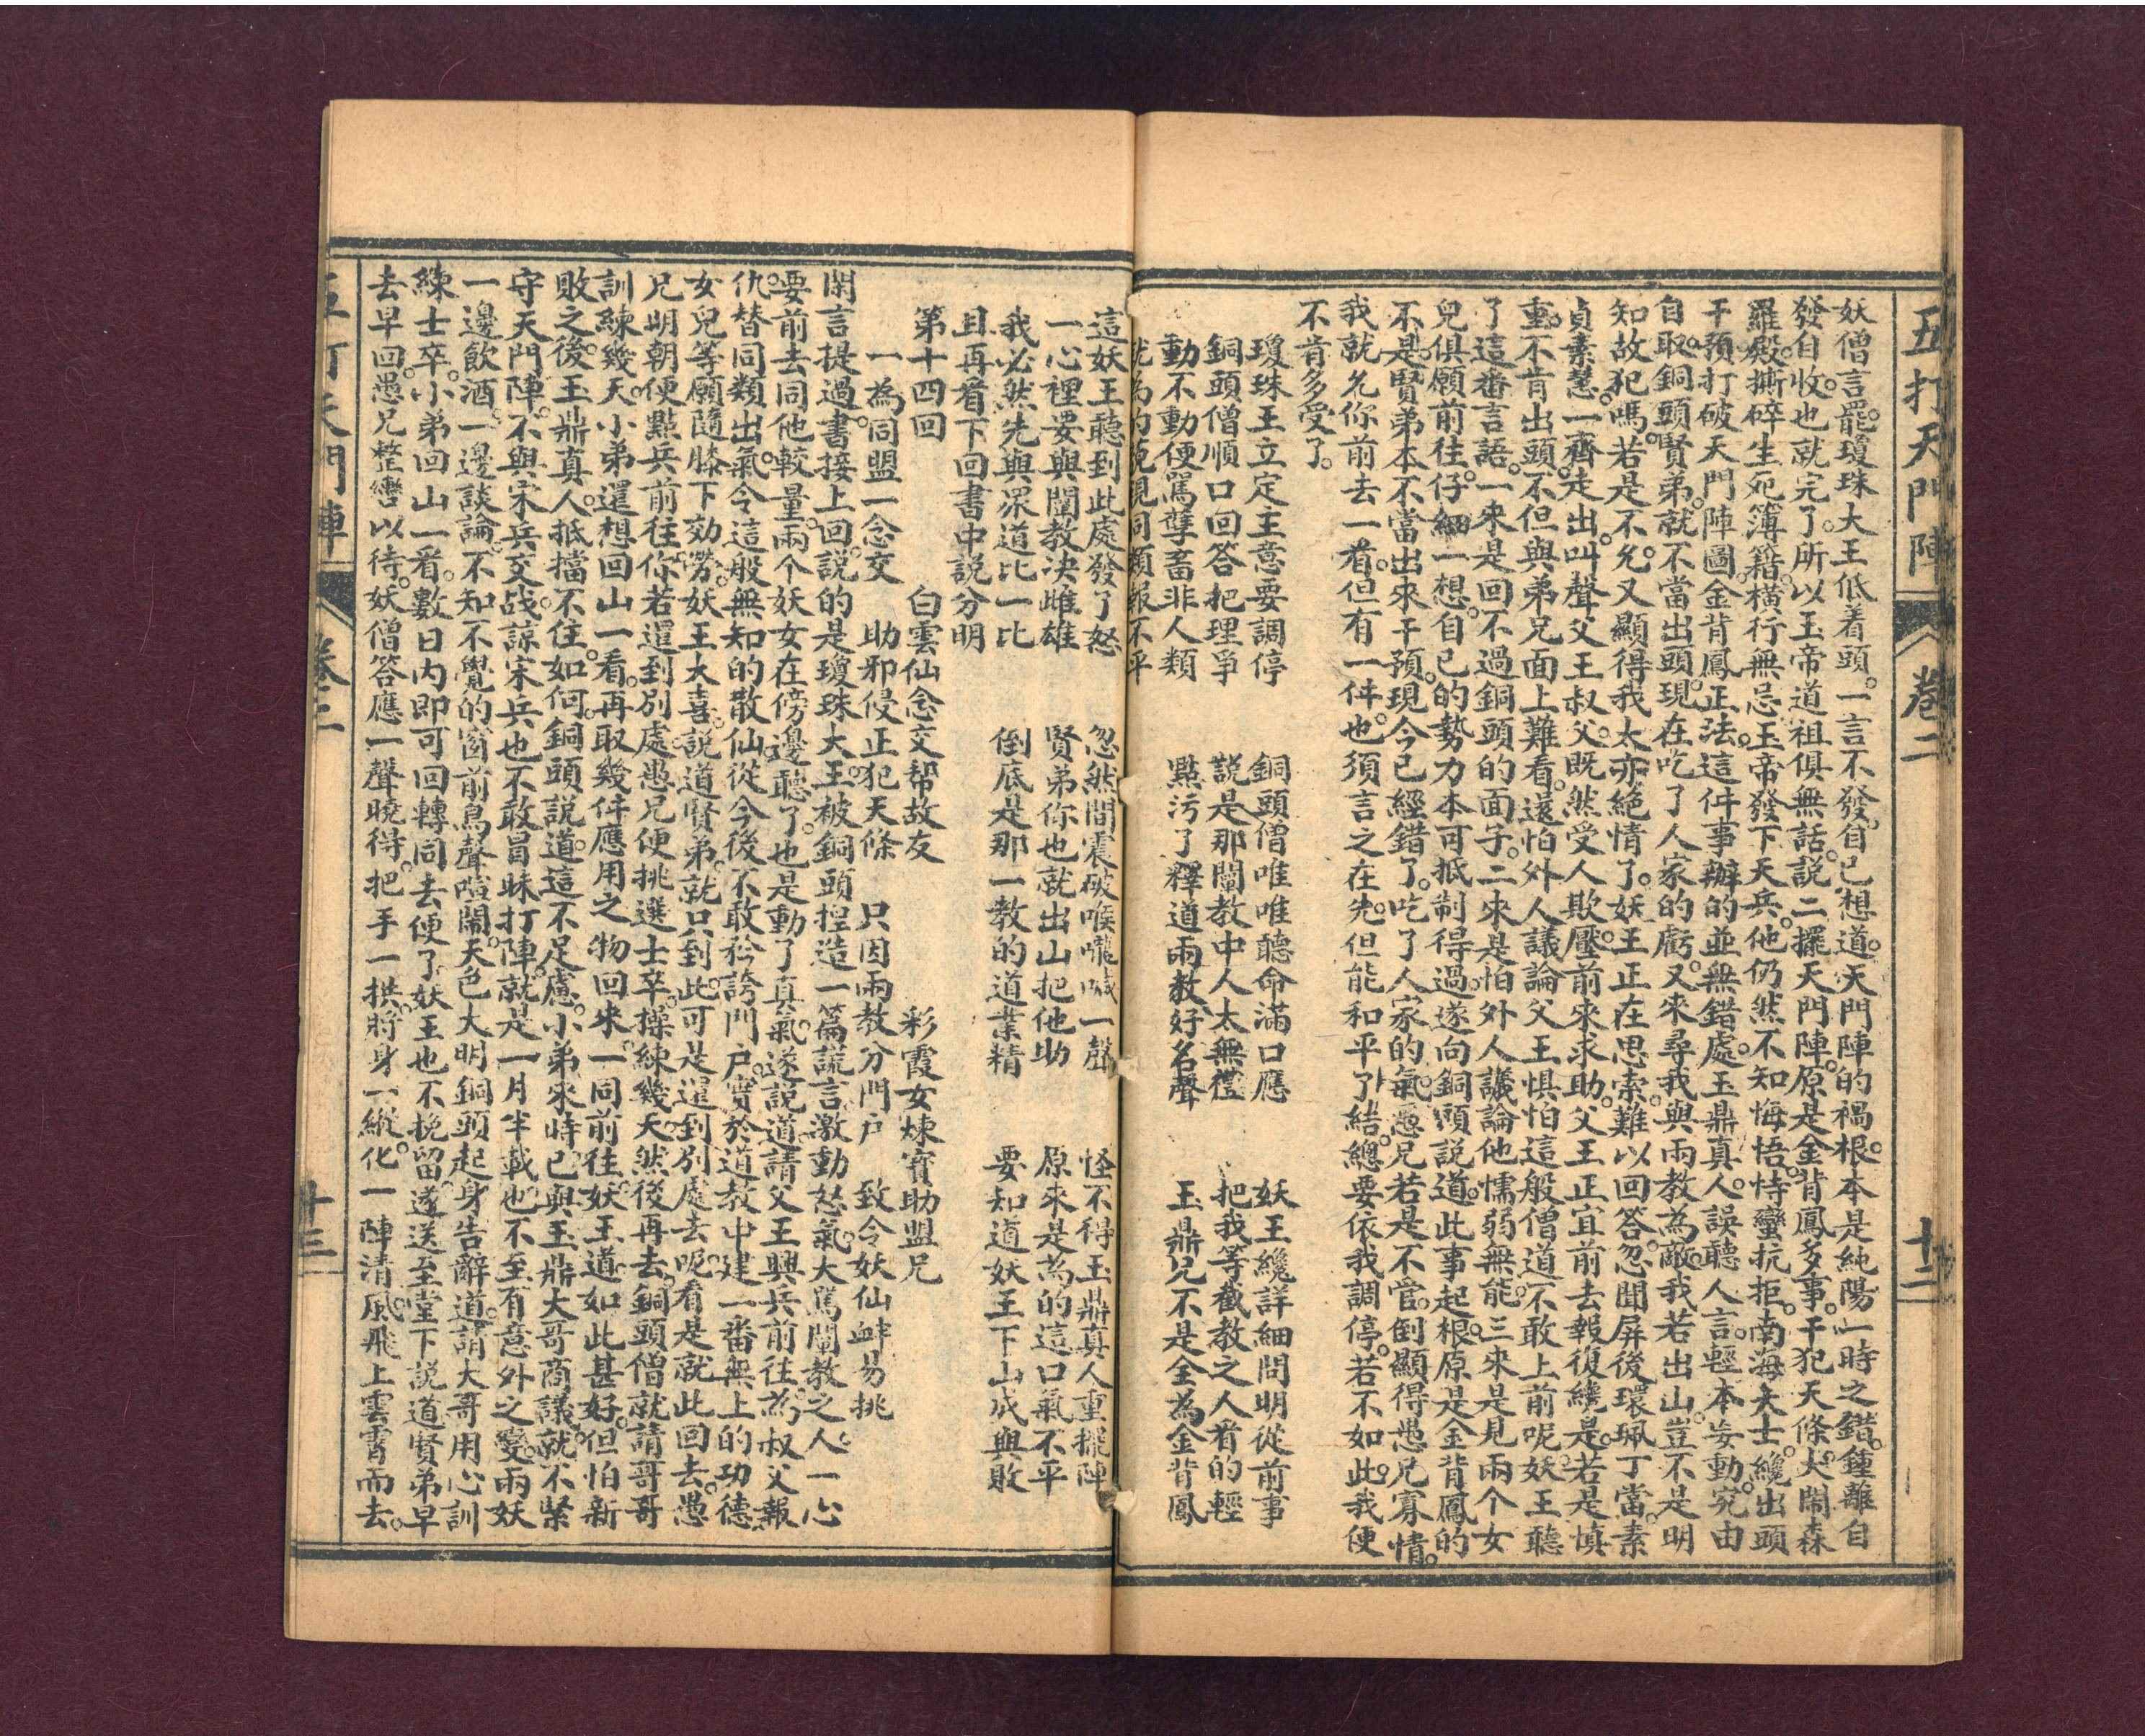 五打天門陣 卷二 十二
妖僧言罷。瓊珠大王低着頭。一言不發。自己想道。天門陣的禍根。本是純陽一時之錯。鍾離自
發自收。也就完了。所以玉帝道祖俱無話。說二擺天門陣。原是金背鳳多事。干犯天條。大鬧森
羅殿。撕碎生死簿籍。橫行無忌。玉帝發下天兵。他仍然不知悔悟。恃蠻抗拒。南海大士。纔出頭
干預。打破天門陣圖。金背鳳正法。這件事辦的並無錯處。玉鼎真人。誤聽人言。輕本妄動。宛由
自取。銅頭賢弟。就不當出頭。現在吃了人家的虧。又來尋我與兩教為敵。我若出山。豈不是明
知故犯嗎。若是不允。又顯得我太亦絕情了。妖王正在思索。難以回答。忽聞屏後環珮丁當。素
貞素慧。一齊走出。叫聲父王叔父。既然受人欺壓。前來求助。父王正宜前去報復纔是。若是慎
重。不肯出頭。不但與弟兄面上難看。還怕外人議論父王惧怕這般僧道。不敢上前呢。妖王聽
了這番言語。一來是回不過銅頭的面子。二來是怕外人議論他懦弱無能。三來是見兩个女
兒俱願前往。仔細一想。自已的勢力本可抵制得過。遂向銅頭說道。此事起根。原是金背鳳的
不是。賢弟本不當出來干預。現今已經錯了。吃了人家的氣。愚兄若是不管。倒顯得愚兄寡情。
我就允你前去一看。但有一件也須言之在先。但能和平了結。總要依我調停。若不如此。我便
不肯多受了。
瓊珠王立定主意要調停　銅頭僧唯唯聽命滿口應　妖王纔詳細問明從前事
銅頭僧順口回答把理爭　說是那闡教中人太無禮　把我等截教之人看的輕
動不動便罵孽畜非人類　點污了釋道兩教好名聲　玉鼎兄不是金為金背鳳
就為的藐視同類報不平
這妖王聽到此處發了怒　忽然間震破喉嚨喊一聲　怪不得玉鼎真人重擺陣
一心裡要與闡教决雌雄　賢弟你也就出山把他助　原來是為的這口氣不平
我必然先與眾道比一比　倒底是那一教的道業精　要知道妖王下山成與敗
且再看下回書中說分明
第十四回　白雲仙念交帮故友　彩霞女煉寶助盟兄
一為同盟一念交　助邪侵正犯天條　只因兩教分門户　致令妖仙衅易挑
閑言提過。書接上回。說的是瓊珠大王。被銅頭捏造一篇謊言。激動怒氣。大罵闡教之人。一心
要前去同他較量。兩个妖女在傍邊聽了。也是動了真氣。遂說道。請父王興兵前往。為叔父報
仇。替同類出氣。令這般無知的散仙。從今後不敢矜誇門户。實於道教中建一番無上的功德。
女兒等願隨膝下効勞。妖王大喜。說道賢弟。就只到此。可是還到別處去呢。看是就此回去。愚
兄明朝便點兵前往。你若還到別處。愚兄便挑選士卒。操練幾天。然後再去。銅頭僧就請哥哥
訓練幾天。小弟還想回山一看。再取幾件應用之物回來。一同前往。妖王道。如此甚好。但怕新
敗之後。玉鼎真人。抵擋不住。如何。銅頭說道。這不足慮。小弟來時。已與玉鼎大哥商議。就不緊
守天門陣。不與宋兵交战。諒宋兵也不敢冒昧打陣。就是一月半載。也不至有意外之變。兩妖
一邊飲酒。一邊談論。不知不覺的窗前鳥聲喧鬧。天色大明。銅頭起身告辭道。請大哥用心訓
練士卒。小弟回山一看。數日內即可回轉。同去便了。妖王也不挽留。遂送至堂下。說道賢弟早
去早回。愚兄整轡以待。妖僧答應一聲曉得。把手一拱。將身一縱。化一陣清風。飛上雲霄而去。
五打天門陣 卷二 十三